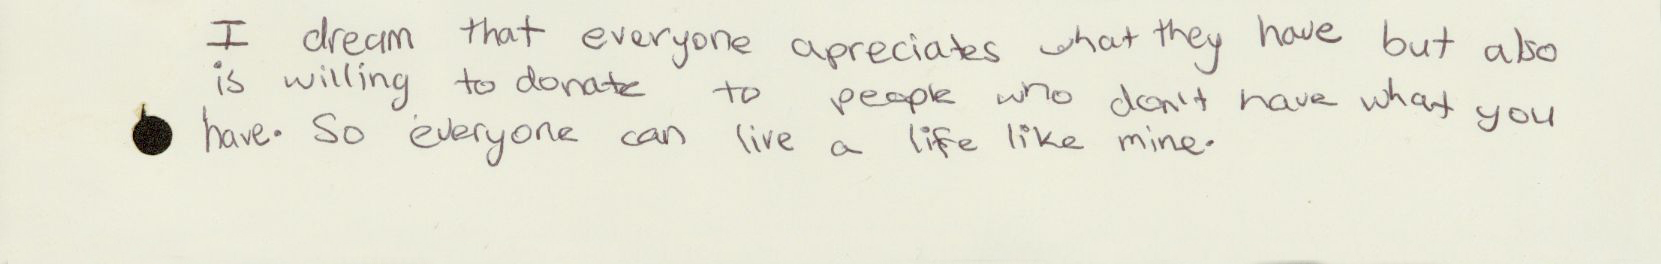 I dream that everyone apreciates what they have but also
is willing to donate to people who don't have what you
have. So everyone can live a life like mine.